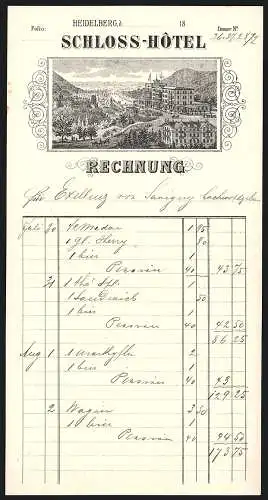 Folio: HEIDELBERG, d. 18 Zimmer Nº
SCHLOSS-HÔTEL
RECHNUNG
für Exellenz von Savigny
Juli 30 1 95
1 gl. Sherry 80
1 bier 1
Pension 40 43 75
31 1
1 Sandwich 50
1 bier 1
Pension 40 42 50
86 25
Aug 1 1 2
1 bier 1
Pension 40 43
129 25
2 Wagen 3 50
1 bier 1
Pension 40 44 50
173 75